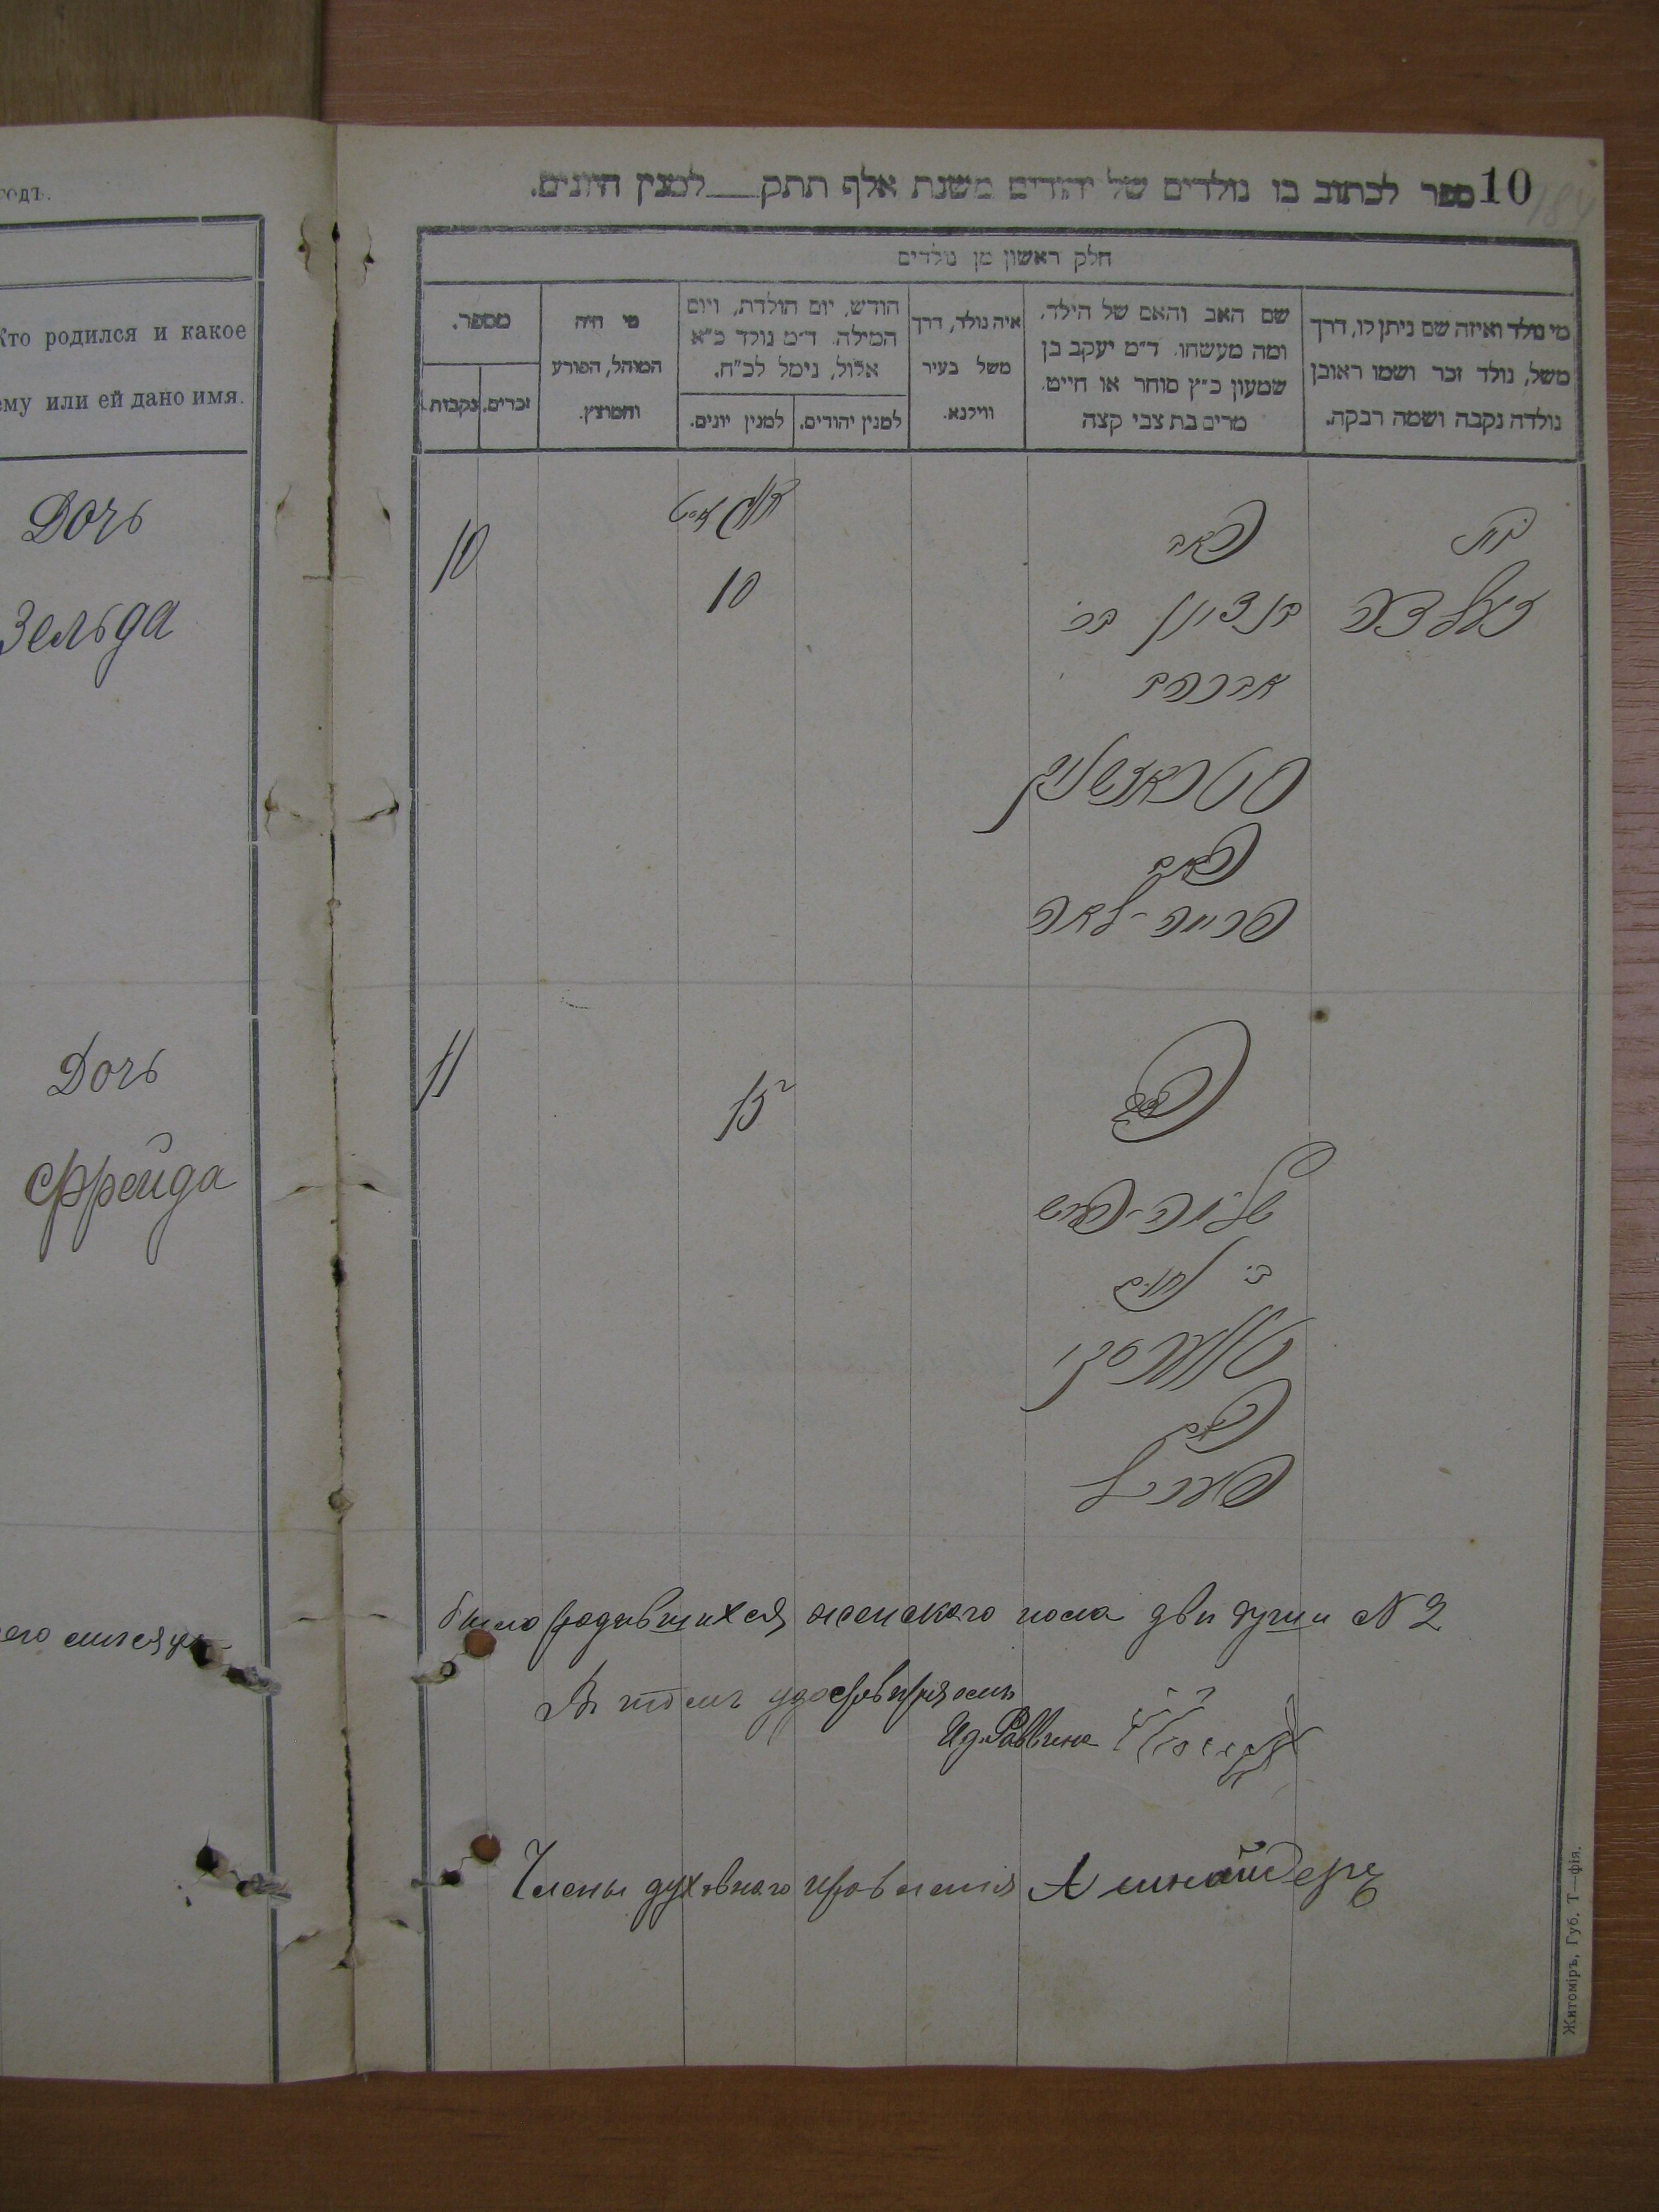 годъ.
Кто родился и какое
ему или ей дано имя.
Дочь
Зельда
Дочь
Фрейда
его месяца
10 ספר לכתוב בו נולדים של יהודים משנת אלף תתק___למנין היונים.
חלק ראשון מן נולדים
מי נולד ואיזה שם ניתן לו, דרך
משל, נולד זכר ושמו ראובן
נולדה נקבה ושמה רבקה.
שם האב והאם של הילד,
ומה מעשהו. ד״מ יעקב בן
שמעון כ״ץ סוחר או חייט.
מרים בת צבי קצה
איה נולד, דרך
משל בעיר
ווילנא.
חודש, יום הולדת, ויום
המילה. ד״מ נולד כ״א
אלול, נימל לכ״ח.
למנין יהודים.
למנין יונים.
מי היה
המוהל, הפורע
והמוצץ.
מספר.
זכרים.
נקבות
בת
זעלדה
האב
בן ציון בר׳
אברהם
האם
חיה-לאה
10
10
האב
שלמה-הירש
ב׳ חיים
האם
פערל
15
11
было родившихся женского пола две души № 2
В томъ удостоверяемъ
И.д. Раввина
Члены духовнаго правления А Шнайдеръ
Житоміръ, Губ. Т—фія.